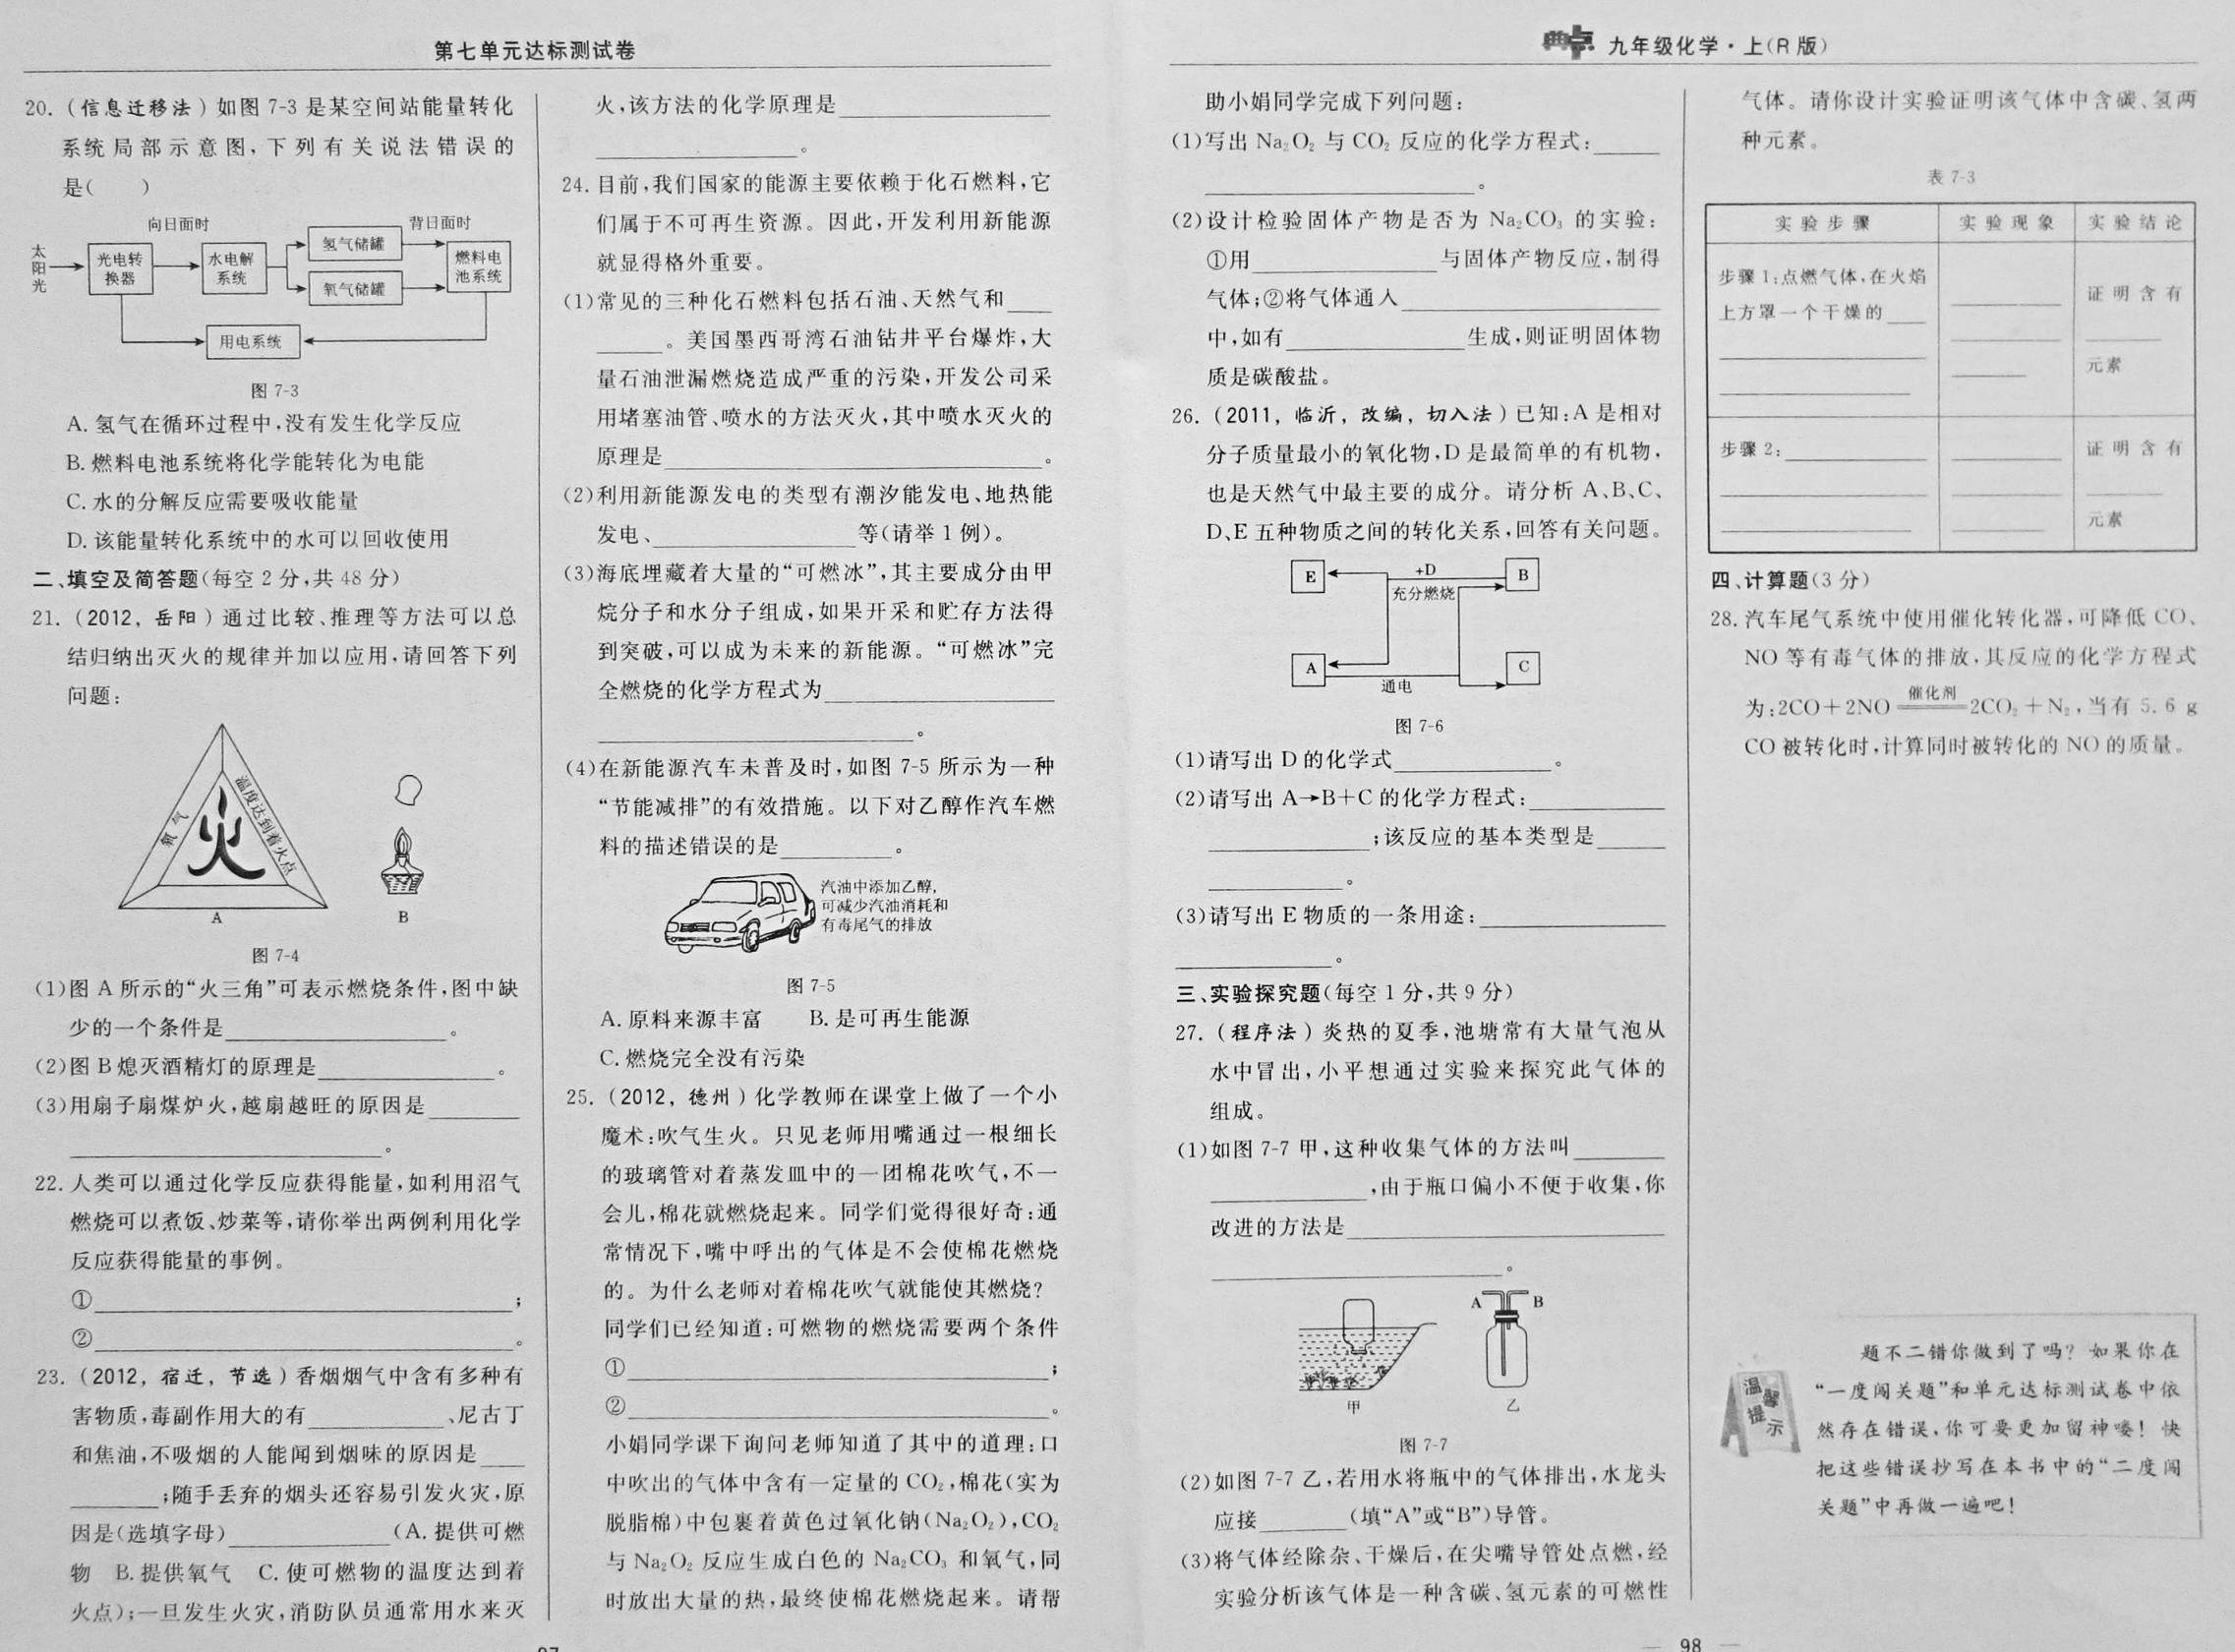 第七单元达标测试卷
20.(信息迁移法)如图 7-3 是某空间站能量转化
系统局部示意图,下列有关说法错误的
是(　　)
向日面时
背日面时
太阳光
光电转换器
水电解系统
氢气储罐
氧气储罐
燃料电池系统
用电系统
图 7-3
A. 氢气在循环过程中,没有发生化学反应
B. 燃料电池系统将化学能转化为电能
C. 水的分解反应需要吸收能量
D. 该能量转化系统中的水可以回收使用
二、填空及简答题(每空 2 分,共 48 分)
21.(2012,岳阳)通过比较、推理等方法可以总
结归纳出灭火的规律并加以应用,请回答下列
问题:
氧气
温度达到着火点
火
A
B
图 7-4
(1)图 A 所示的“火三角”可表示燃烧条件,图中缺
少的一个条件是________。
(2)图 B 熄灭酒精灯的原理是________。
(3)用扇子扇煤炉火,越扇越旺的原因是________
________。
22. 人类可以通过化学反应获得能量,如利用沼气
燃烧可以煮饭、炒菜等,请你举出两例利用化学
反应获得能量的事例。
①________;
②________。
23.(2012,宿迁,节选)香烟烟气中含有多种有
害物质,毒副作用大的有________、尼古丁
和焦油,不吸烟的人能闻到烟味的原因是____
________;随手丢弃的烟头还容易引发火灾,原
因是(选填字母)________(A. 提供可燃
物　B. 提供氧气　C. 使可燃物的温度达到着
火点);一旦发生火灾,消防队员通常用水来灭
火,该方法的化学原理是________
________。
24. 目前,我们国家的能源主要依赖于化石燃料,它
们属于不可再生资源。因此,开发利用新能源
就显得格外重要。
(1)常见的三种化石燃料包括石油、天然气和____
____。美国墨西哥湾石油钻井平台爆炸,大
量石油泄漏燃烧造成严重的污染,开发公司采
用堵塞油管、喷水的方法灭火,其中喷水灭火的
原理是________。
(2)利用新能源发电的类型有潮汐能发电、地热能
发电、________等(请举 1 例)。
(3)海底埋藏着大量的“可燃冰”,其主要成分由甲
烷分子和水分子组成,如果开采和贮存方法得
到突破,可以成为未来的新能源。“可燃冰”完
全燃烧的化学方程式为________
________。
(4)在新能源汽车未普及时,如图 7-5 所示为一种
“节能减排”的有效措施。以下对乙醇作汽车燃
料的描述错误的是________。
汽油中添加乙醇,
可减少汽油消耗和
有毒尾气的排放
图 7-5
A. 原料来源丰富　　B. 是可再生能源
C. 燃烧完全没有污染
25.(2012,德州)化学教师在课堂上做了一个小
魔术:吹气生火。只见老师用嘴通过一根细长
的玻璃管对着蒸发皿中的一团棉花吹气,不一
会儿,棉花就燃烧起来。同学们觉得很好奇:通
常情况下,嘴中呼出的气体是不会使棉花燃烧
的。为什么老师对着棉花吹气就能使其燃烧?
同学们已经知道:可燃物的燃烧需要两个条件
①________;
②________。
小娟同学课下询问老师知道了其中的道理:口
中吹出的气体中含有一定量的 CO₂,棉花(实为
脱脂棉)中包裹着黄色过氧化钠(Na₂O₂),CO₂
与 Na₂O₂ 反应生成白色的 Na₂CO₃ 和氧气,同
时放出大量的热,最终使棉花燃烧起来。请帮
典点 九年级化学·上(R 版)
助小娟同学完成下列问题:
(1)写出 Na₂O₂ 与 CO₂ 反应的化学方程式:____
________。
(2)设计检验固体产物是否为 Na₂CO₃ 的实验:
①用________与固体产物反应,制得
气体;②将气体通入________
中,如有________生成,则证明固体物
质是碳酸盐。
26.(2011,临沂,改编,切入法)已知:A 是相对
分子质量最小的氧化物,D 是最简单的有机物,
也是天然气中最主要的成分。请分析 A、B、C、
D、E 五种物质之间的转化关系,回答有关问题。
E
+D
充分燃烧
B
A
通电
C
图 7-6
(1)请写出 D 的化学式________。
(2)请写出 A→B+C 的化学方程式:________
________;该反应的基本类型是____
________。
(3)请写出 E 物质的一条用途:________
________。
三、实验探究题(每空 1 分,共 9 分)
27.(程序法)炎热的夏季,池塘常有大量气泡从
水中冒出,小平想通过实验来探究此气体的
组成。
(1)如图 7-7 甲,这种收集气体的方法叫____
________,由于瓶口偏小不便于收集,你
改进的方法是________
________。
A
B
甲
乙
图 7-7
(2)如图 7-7 乙,若用水将瓶中的气体排出,水龙头
应接____(填“A”或“B”)导管。
(3)将气体经除杂、干燥后,在尖嘴导管处点燃,经
实验分析该气体是一种含碳、氢元素的可燃性
气体。请你设计实验证明该气体中含碳、氢两
种元素。
表 7-3
实验步骤　实验现象　实验结论
步骤 1:点燃气体,在火焰
上方罩一个干燥的____
证明含有
____
元素
步骤 2:________
证明含有
____
元素
四、计算题(3 分)
28. 汽车尾气系统中使用催化转化器,可降低 CO、
NO 等有毒气体的排放,其反应的化学方程式
为:2CO+2NO 催化剂═══ 2CO₂+N₂,当有 5.6 g
CO 被转化时,计算同时被转化的 NO 的质量。
温馨提示
题不二错你做到了吗?如果你在
“一度闯关题”和单元达标测试卷中依
然存在错误,你可要更加留神喽!快
把这些错误抄写在本书中的“二度闯
关题”中再做一遍吧!
— 98 —